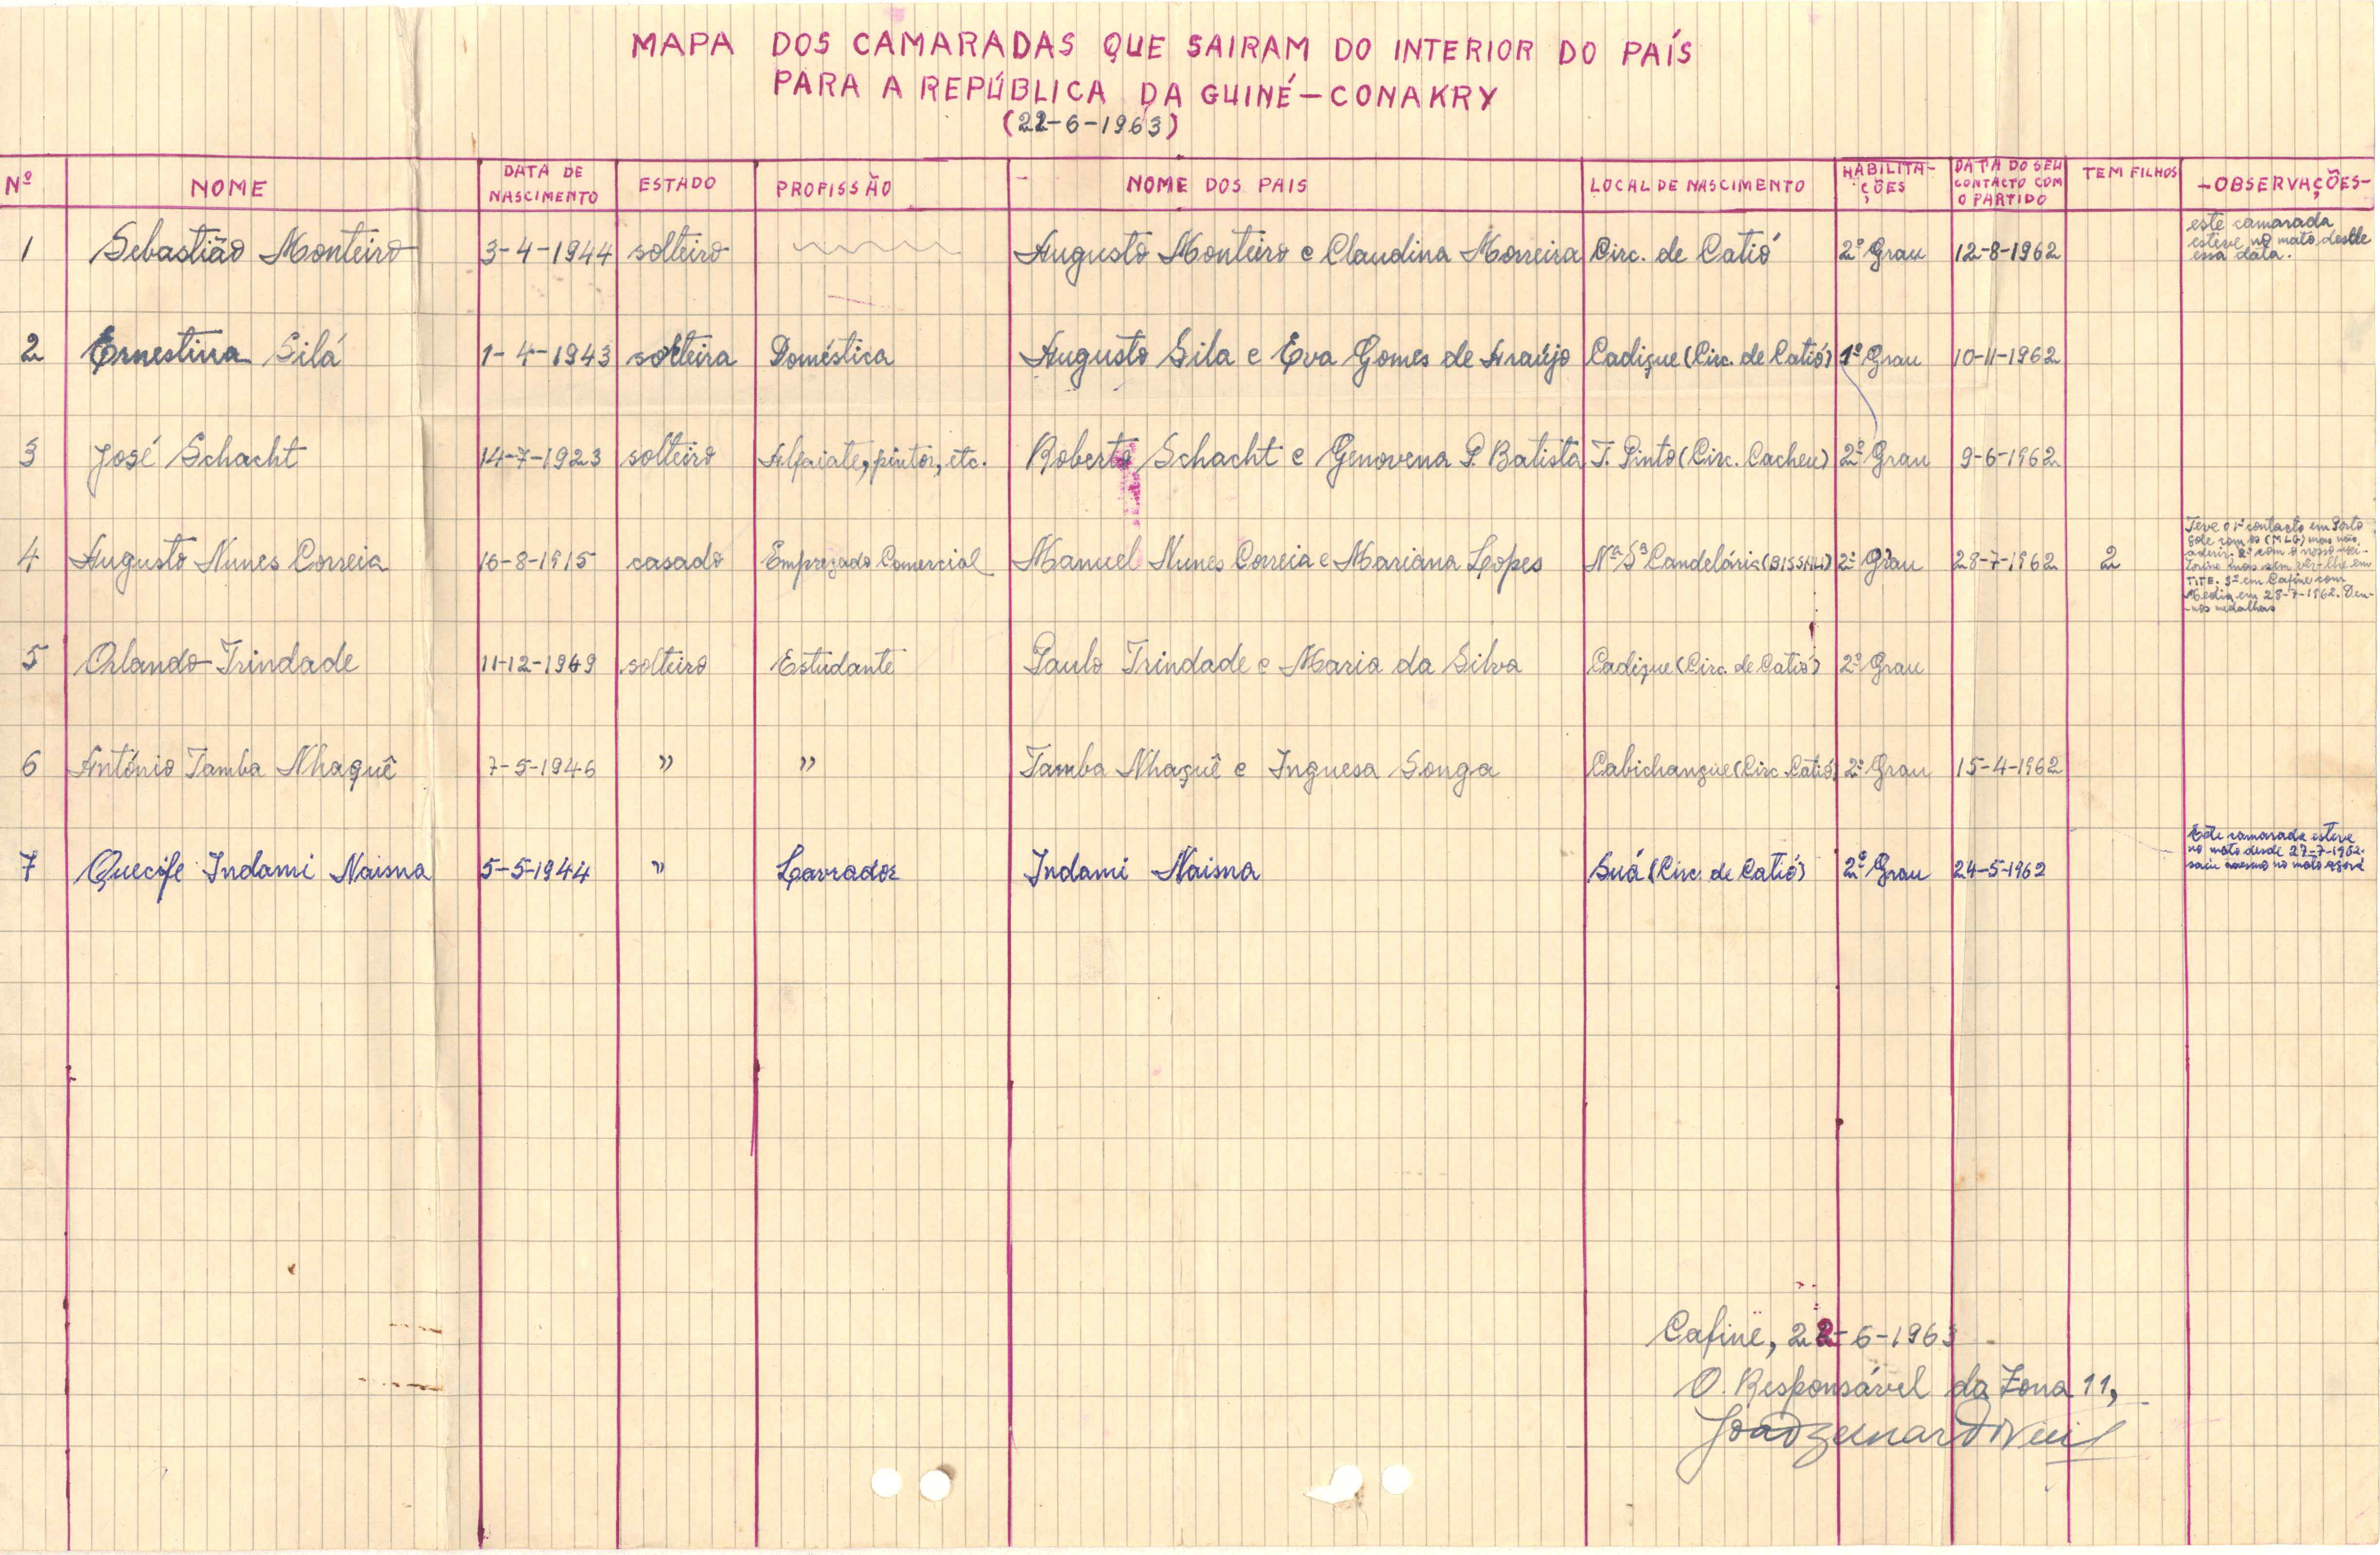 MAPA DOS CAMARADAS QUE SAIRAM DO INTERIOR DO PAÍS
PARA A REPÚBLICA DA GUINÉ-CONAKRY
(22-6-1963)
Nº NOME DATA DE NASCIMENTO ESTADO PROFISSÃO NOME DOS PAIS LOCAL DE NASCIMENTO HABILITA-ÇÕES DATA DO SEU CONTACTO COM O PARTIDO TEM FILHOS -OBSERVAÇÕES-
1 Sebastião Monteiro 3-4-1944 solteiro Augusto Monteiro e Claudina Morreira Circ. de Catió 2º Grau 12-8-1962 este camarada
esteve no mato desde
essa data.
2 Ernestina Silá 1-4-1943 solteira Doméstica Augusto Sila e Eva Gomes de Araújo Cadique (Circ. de Catió) 1º Grau 10-11-1962
3 José Schacht 14-7-1923 solteiro Alfaiate, pintor, etc. Roberto Schacht e Genovena P. Batista T. Pinto (Circ. Cacheu) 2º Grau 9-6-1962
4 Augusto Nunes Correia 16-8-1915 casado Empregado Comercial Manuel Nunes Correia e Mariana Lopes Nª Sª Candelária (BISSAU) 2º Grau 28-7-1962 2 Teve o 1º contacto em Porto
Gole com os (MLG) mas não
aderir. 2º com o nosso
mas sem ver-lhe em
TITE. 3º em Cafine com
em 28-7-1962. Deu-
-nos medalhas
5 Orlando Trindade 11-12-1949 solteiro Estudante Paulo Trindade e Maria da Silva Cadique (Circ. de Catió) 2º Grau
6 António Tamba Nhaquê 7-5-1946 " " Tamba Nhaquê e Inguesa Songa Cabichangue (Circ. Catió) 2º Grau 15-4-1962
7 Quecife Indami Naisna 5-5-1944 " Lavrador Indami Naisna Suá (Circ. de Catió) 2º Grau 24-5-1962 Este camarada esteve
no mato desde 27-7-1962.
saiu mesmo no mato agora
Cafine, 22-6-1963
O Responsável da Zona 11,